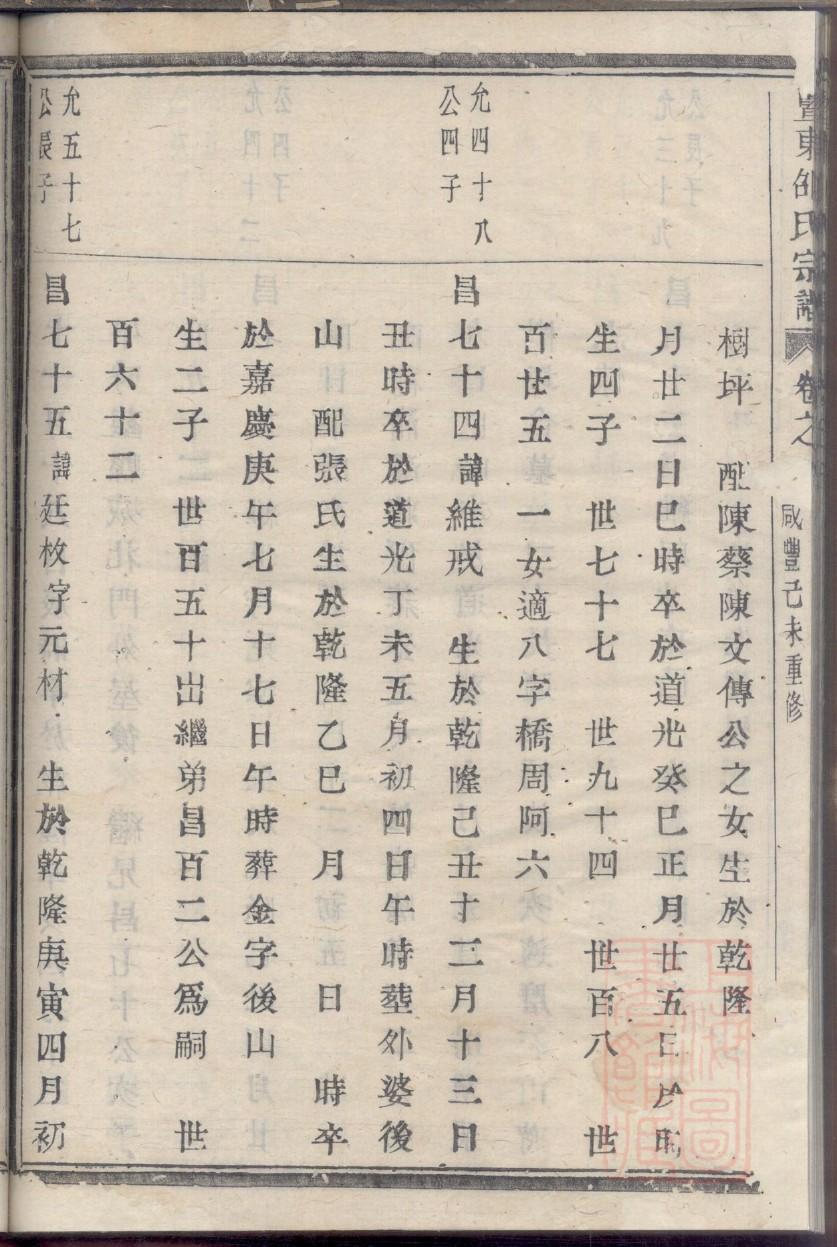 暨東邵氏宗譜 卷之
咸豐己未重修
樹坪 配陳蔡陳文傳公之女生於乾隆
月廿二日巳時卒於道光癸巳正月廿五日
生四子 世七十七 世九十四 世百八 世
百廿五 一女適八字橋周阿六
允四十八
公四子
昌七十四諱維戒 生於乾隆己丑十二月十三日
丑時卒於道光丁未五月初四日午時塟外婆後
山 配張氏生於乾隆乙巳 月初五日 時卒
於嘉慶庚午七月十七日午時葬金字後山
生二子 世百五十出繼弟昌百二公為嗣 世
百六十二
允五十七
公長子
昌七十五諱廷枚字元材 生於乾隆庚寅四月初